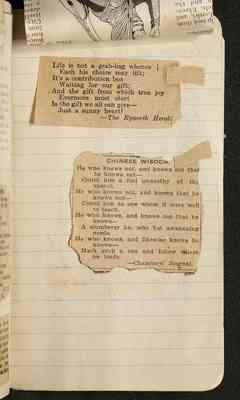 Life is not a grab-bag whence
Each his choice may lift;
It's a contribution box
Waiting for our gift;
And the gift from which true joy
Evermore must start
Is the gift we all can give—
Just a sunny heart!
—The Epworth Herald
CHINESE WISDOM.
He who knows not, and knows not that
he knows not—
Count him a fool unworthy of thy
speech.
He who knows not, and knows that he
knows not—
Count him as one whom it were well
to teach.
He who knows, and knows not that he
knows—
A slumberer he, who but awakening
needs.
He who knows, and likewise knows he
knows—
Mark such a one and follow where
he leads.
—Chambers' Journal.